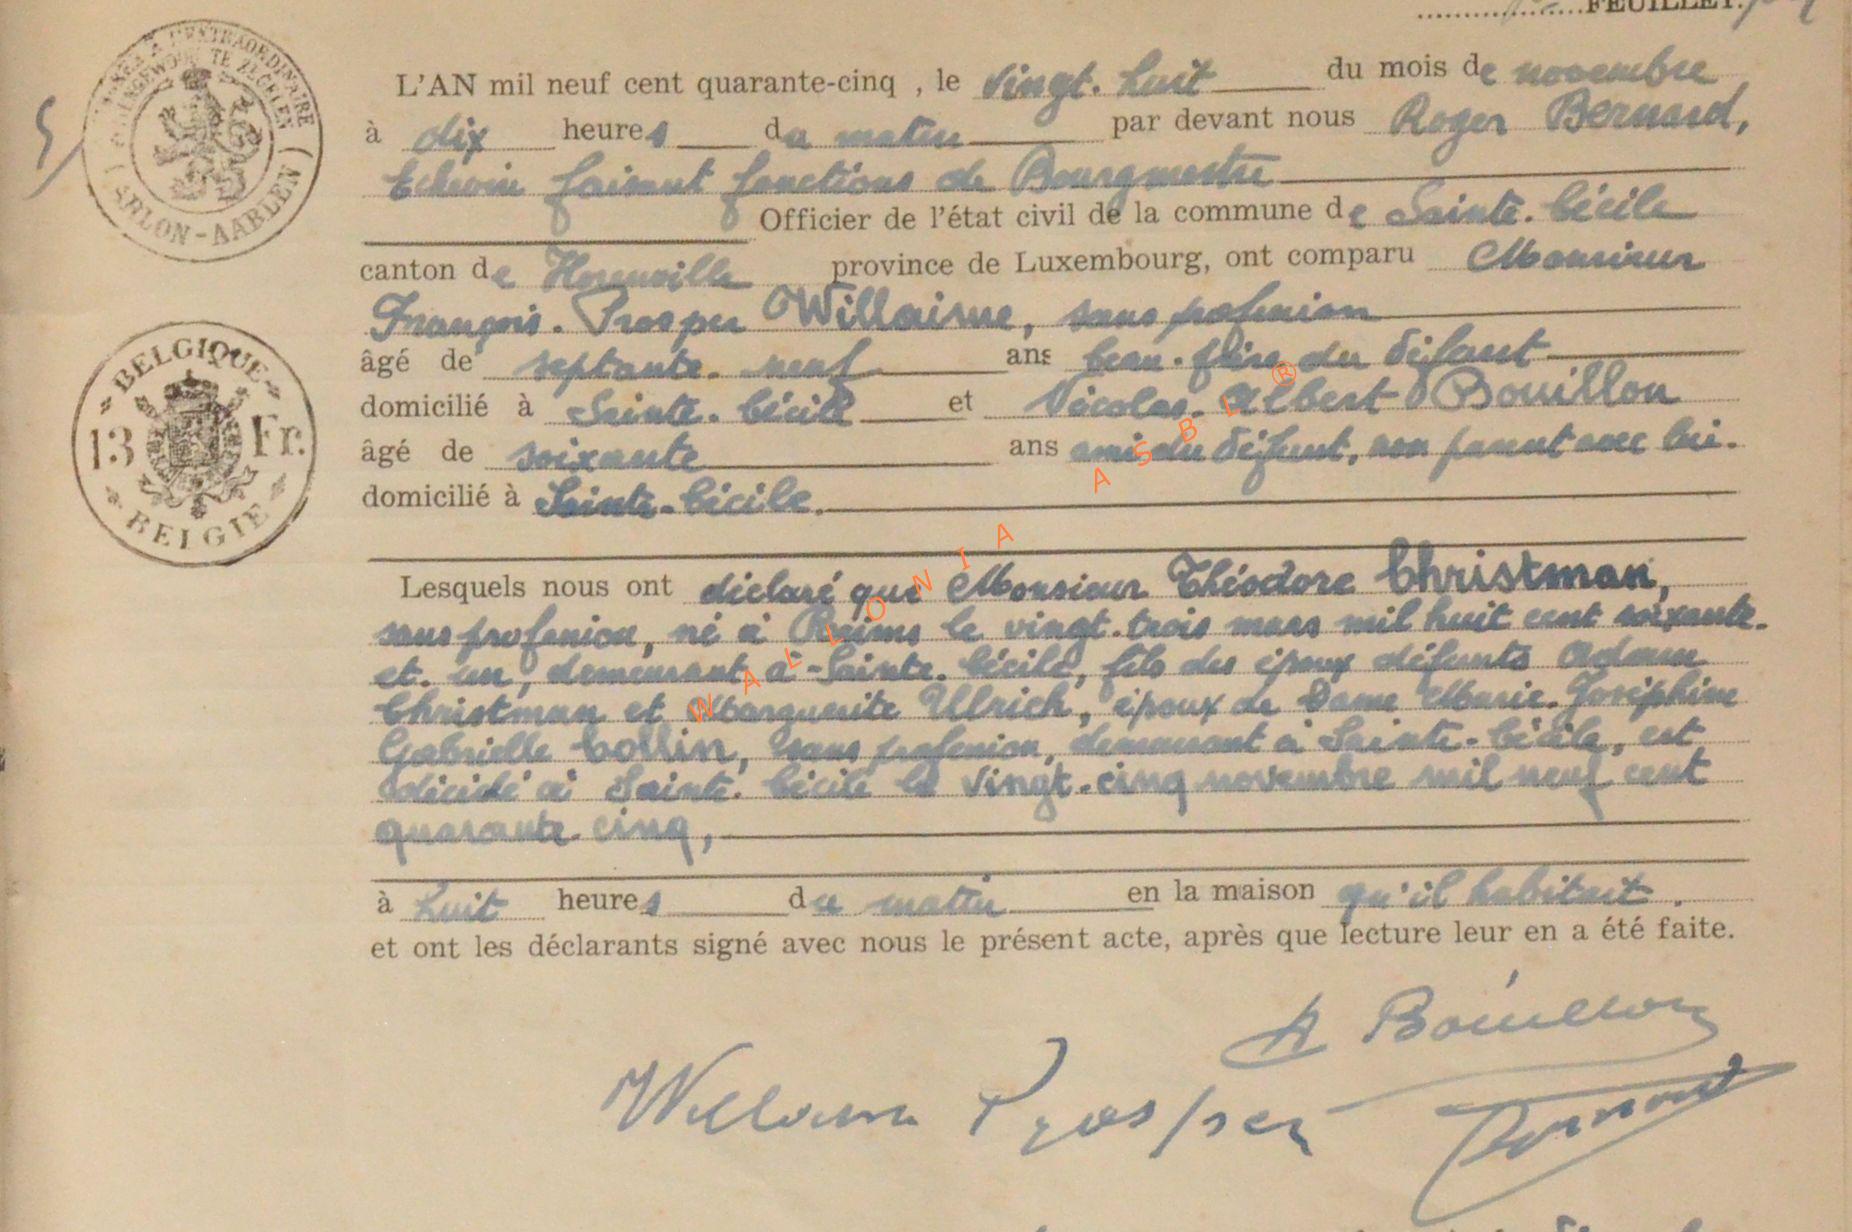 FEUILLET.
L'AN mil neuf cent quarante-cinq , le vingt-huit du mois de novembre
à dix heures du matin par devant nous Roger Bernard,
Echevin faisant fonctions de Bourgmestre
Officier de l'état civil de la commune de Sainte-Cécile
canton de Florenville province de Luxembourg, ont comparu Monsieur
François-Prosper Willaime, sans profession
âgé de septante-neuf ans beau-frère du défunt
domicilié à Sainte-Cécile et Nicolas-Albert Bouillon
âgé de soixante ans ami du défunt, non parent avec lui.
domicilié à Sainte-Cécile.
Lesquels nous ont déclaré que Monsieur Théodore Christman,
sans profession, né à Reims le vingt-trois mars mil huit cent soixante-
et-un, demeurant à Sainte-Cécile, fils des époux défunts Adam
Christman et Marguerite Ulrich, époux de Dame Marie-Joséphine
Gabrielle Collin, sans profession, demeurant à Sainte-Cécile, est
décédé à Sainte-Cécile le vingt-cinq novembre mil neuf cent
quarante-cinq,
à huit heures du matin en la maison qu'il habitait.
et ont les déclarants signé avec nous le présent acte, après que lecture leur en a été faite.
A Bouillon
Willaime Prosper
Bernard
ARLON-AARLEN
BELGIQUE
13 Fr.
BELGIE
WALLONIA ASBL ®